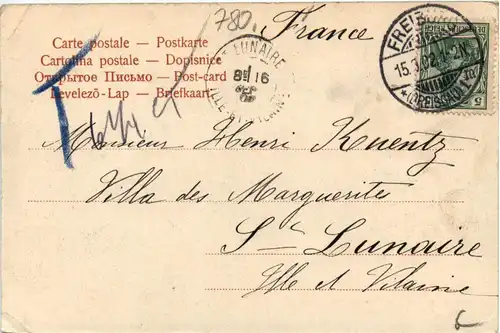 780.
France
Carte postale — Postkarte
Cartolina postale — Dopisnice
Открытое Письмо — Post-card
Levelező-Lap — Briefkaart
LUNAIRE
8E 16
ILLE-ET-VILAINE
FREIBURG
15.3.02.
(BREISGAU)
5
T
Monsieur Henri Kuentz
Villa des Marguerites
St Lunaire
Ille et Vilaine